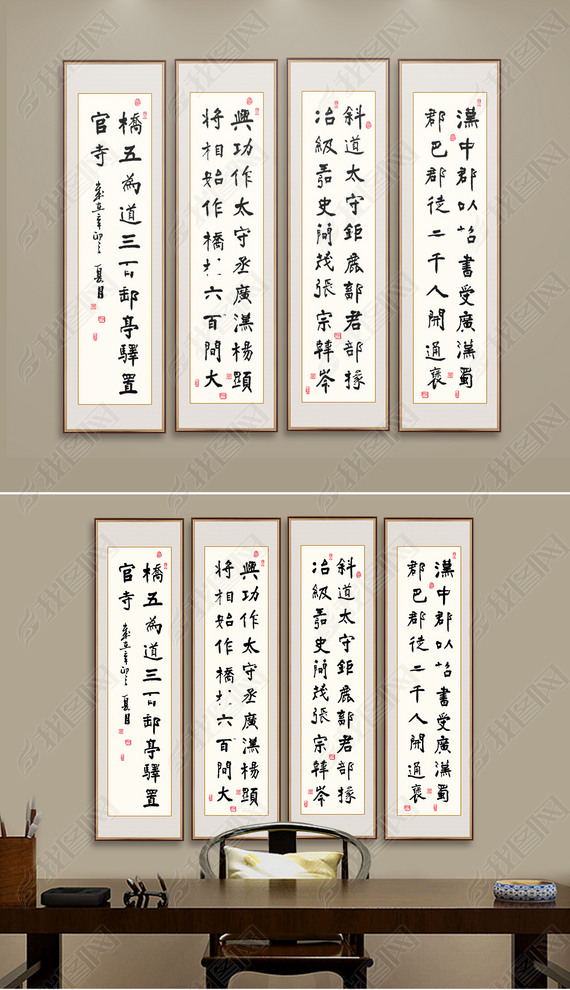 漢中郡以詔書受廣漢蜀
郡巴郡徒二千人開通褒
斜道太守鉅鹿鄐君部掾
冶級史茂張宗韓岑
興功作太守丞廣漢楊顯
將相始作橋六百間大
橋五為道三百郵亭驛置
官寺
夏月
漢中郡以詔書受廣漢蜀
郡巴郡徒二千人開通褒
斜道太守鉅鹿鄐君部掾
冶級史茂張宗韓岑
興功作太守丞廣漢楊顯
將相始作橋六百間大
橋五為道三百郵亭驛置
官寺
夏月
我图网